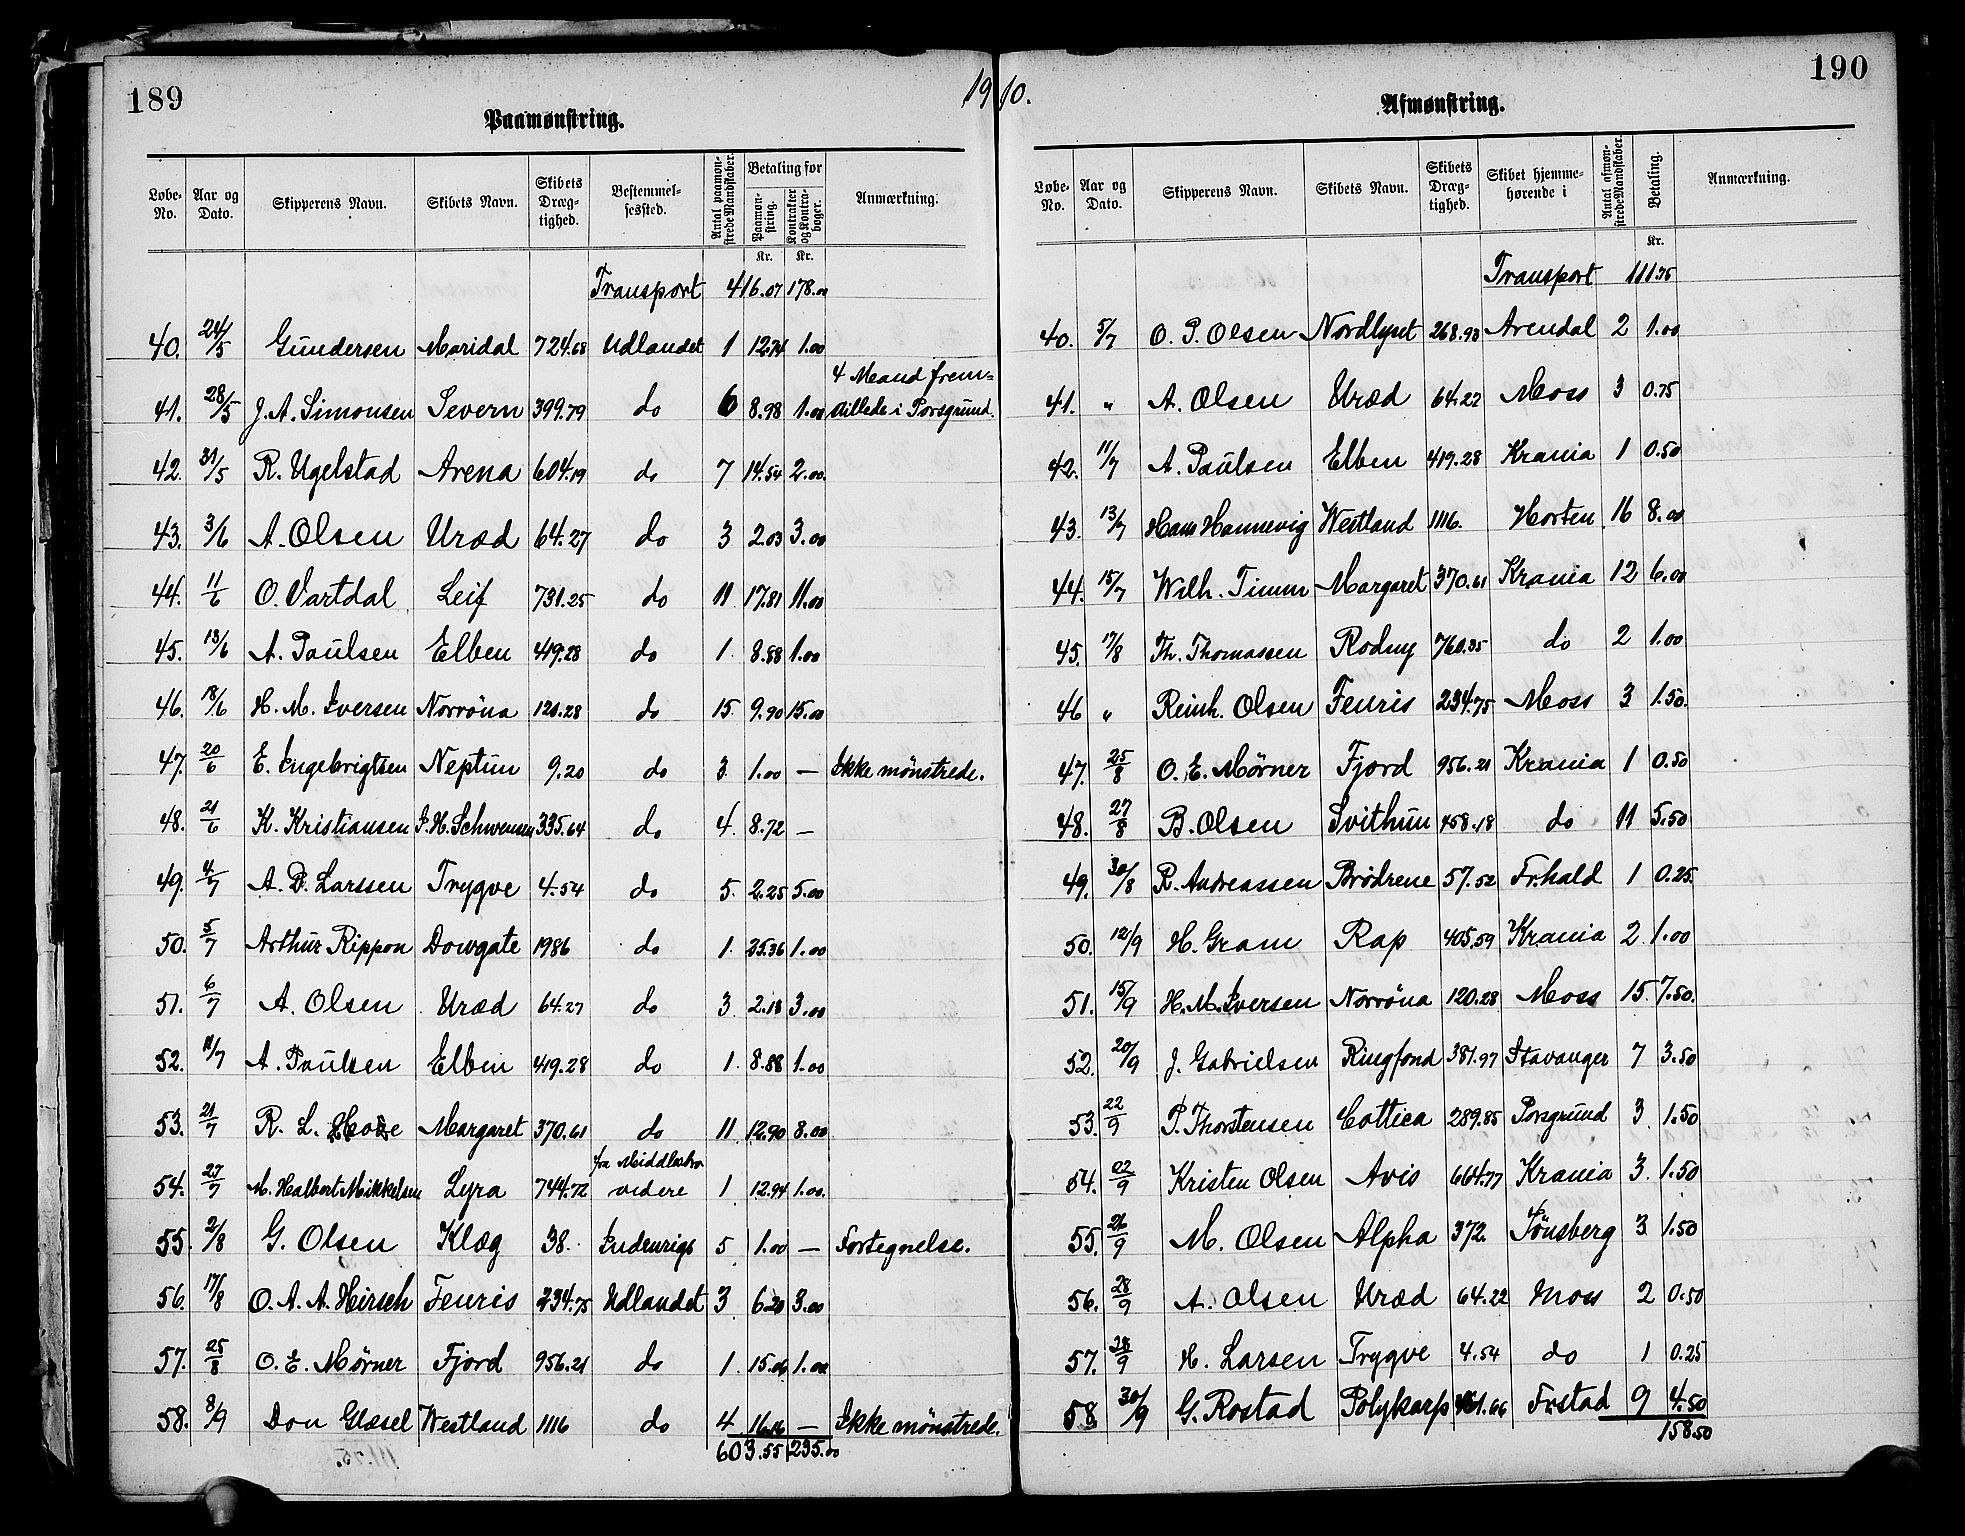 189
1910.
190
Paamønstring.
Løbe-No. | Aar og Dato. | Skipperens Navn. | Skibets Navn. | Skibets Dræg-tighed. | Bestemmel-sessted. | Antal paamøn-strede Mandskaber. | Betaling for Paamøn-string. Kr. | Kontrakter og Kontra-bøger. Kr. | Anmærkning.
Transport 416.07 178.00
40. 24/5 Gundersen Maridal 724.68 Udlandet 1 12.74 1.00
41. 28/5 J. A. Simonsen Severn 399.79 do 6 8.98 1.00 4 Mand frem=stillede i Porsgrund.
42. 31/5 R. Ugelstad Arena 604.19 do 7 14.54 2.00.
43. 3/6 A. Olsen Uræd 64.27 do 3 2.03 3.00
44. 11/6 O. Vartdal Leif 731.25 do 11 17.81 11.00
45. 13/6 A. Paulsen Elben 419.28 do 1 8.88 1.00
46. 18/6 H. M. Iversen Norröna 120.28 do 15 9.90 15.00
47. 20/6 E. Ingebrigtsen Neptun 9.20 do 3 1.00 — Ikke mönstrede.
48. 21/6 K. Kristiansen I. H. Schwensen 335.64 do 4 8.72 —
49. 4/7 A. D. Larssen Trygve 4.54 do 5. 2.25 5.00
50. 5/7 Arthur Rippon Dowgate 1986 do 1. 25.36 1.00
51. 6/7 A. Olsen Uræd 64.27 do 3 2.18 3.00
52. 11/7 A. Paulsen Elben 419.28 do 1. 8.88 1.00
53. 21/7 R. L. Margaret 370.61 do 11 12.90 8.00
54. 27/7 M. Halbert Mikkelsen Lyra 744.72 fra Middlesbro videre 1 12.94 1.00.
55. 2/8 G. Olsen Klæg 38. Indenrigs 5 1.00 — Fortegnelse.
56. 17/8 O. A. A. Hirsch Fenris 234.75 Udlandet 3 6.20 3.00
57. 25/8 O. E. Mørner Fjord 956.21 do 1. 15.06 1.00
58. 8/9 Don Glæsel Westland 1116 do 4 16.16 — Ikke mönstrede.
603.55 235.00
Afmønstring.
Løbe-No. | Aar og Dato. | Skipperens Navn. | Skibets Navn. | Skibets Dræg-tighed. | Skibet hjemme-hørende i | Antal afmøn-strede Mandskaber. | Betaling. Kr. | Anmærkning.
Transport 111.75
40. 5/7 O. P. Olsen Nordlyset 268.93 Arendal 2 1.00
41. " A. Olsen Uræd 64.27 Moss 3 0.75
42. 11/7 A. Paulsen Elben 419.28 Krania 1 0.50
43. 13/7 Hans Hannevig Westland 1116. Horten 16 8.00
44. 15/7 Wilh. Timm Margaret 370.61 Krania 12 6.00
45. 17/8 Th. Thomassen Rodny 760.35 do 2 1.00
46 " Reinh. Olsen Fenris 234.75 Moss 3 1.50.
47. 25/8 O. E. Mörner Fjord 956.21 Krania 1 0.50
48. 27/8 B. Olsen Svithun 458.18 do 11 5.50
49. 30/8 R. Andreassen Brödrene 57.52 Fr.hald 1 0.25.
50. 12/9 H. Gram Rap 405.59 Krania 2 1.00
51. 15/9 H. M. Iversen Norröna 120.28 Moss 15 7.50.
52. 20/9 J. Gabrielsen Ringfond 381.97 Stavanger 7 3.50
53. 22/9 P. Thorstensen Cottica 289.85 Porsgrund 3 1.50
54. 02/9 Kristen Olsen Avis 664.77 Krania 3. 1.50
55. 26/9 M. Olsen Alpha 372. Tönsberg 3 1.50
56. 28/9 A. Olsen Uræd 64.22 Moss 2 0.50
57. 28/9 H. Larsen Trygve 4.54 do 1 0.25
58 30/9 G. Rostad Polykarp Fr.stad 9 4.50
158.50